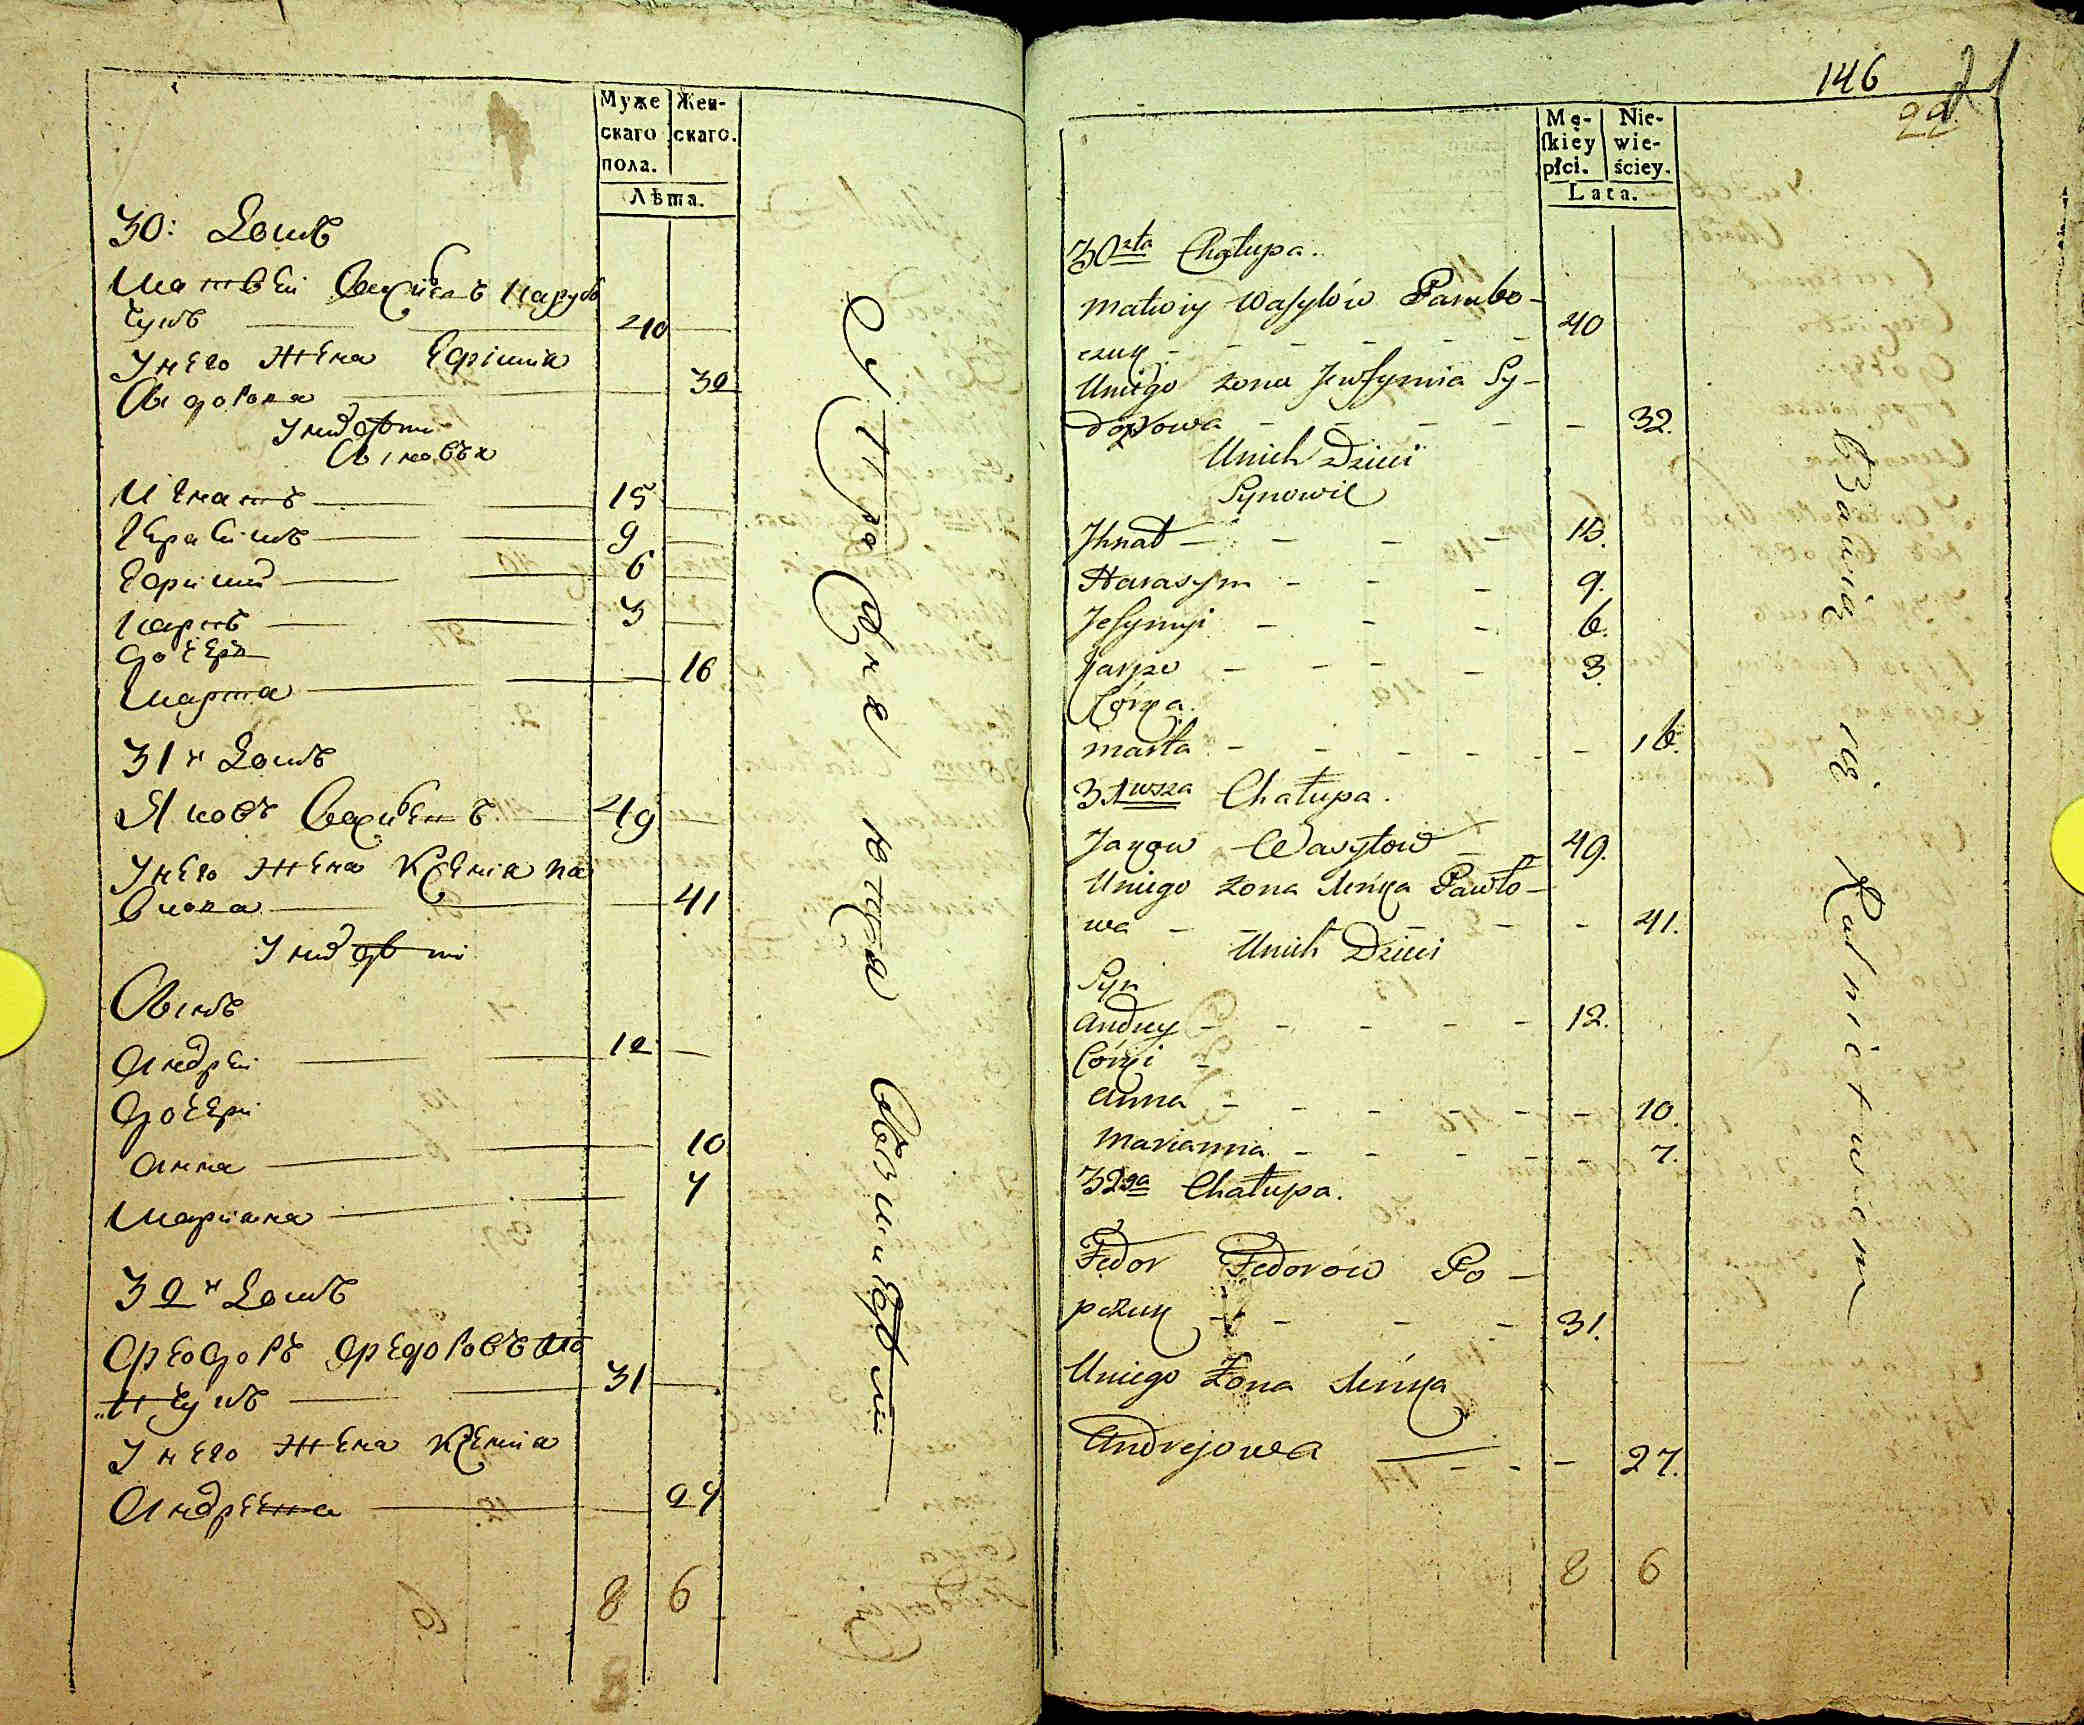 Муже
скаго
пола.
Жен-
скаго.
Лѣта.
30: Домъ
Матвей Васильевъ Паруб
чукъ 40
У него жена Ефімія
Сидорова 32
У них дѣти
Сыновья
Игнатъ 15
Герасимъ 9
Ефимій 6
Карпъ 3
дочерь
Марта 16
31й Домъ
Яковъ Васильевъ 49
У него жена Ксенія Па
влова 41
У них дѣти
Сынъ
Андрей 12
дочери
Анна 10
Марианна 7
32й Домъ
Феодоръ Федоровъ По
пчукъ 31
У него жена Ксенія
Андреева 27
8 6
упражнаются
146
22
Mę-
skiey
płci.
Nie-
wie-
ściey.
Lata.
30sta Chałupa.
Matwiy Wasylów Parubo-
czuk 40
Uniego zona Jewfymia Sy-
dorowa 32.
Unich Dzieci
Synowie
Jhnat 15.
Harasym 9.
Jefymyi 6.
Karpo 3.
Córka.
Marta 16.
31wsza Chałupa.
Jakow Wasylow 49.
Uniego zona Xeńka Pawło-
wa 41.
Unich Dzieci
Syn
Andrey 12.
Córki
Anna 10.
Marianna 7.
32ga Chałupa.
Fedor Fedorów Po-
pczuk 31.
Uniego Żona Xeńka
Andrejowa 27.
8 6
Bawią się Rolnictwem